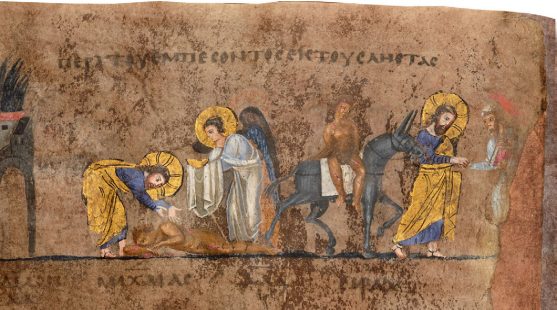 ΠΕΡΙ ΤΟΥ ΕΜΠΕϹΟΝΤΟϹ ΕΙϹ ΤΟΥϹ ΛΗϹΤΑϹ
ΜΙΧΑΙΑϹ ϹΙΡΑΧ